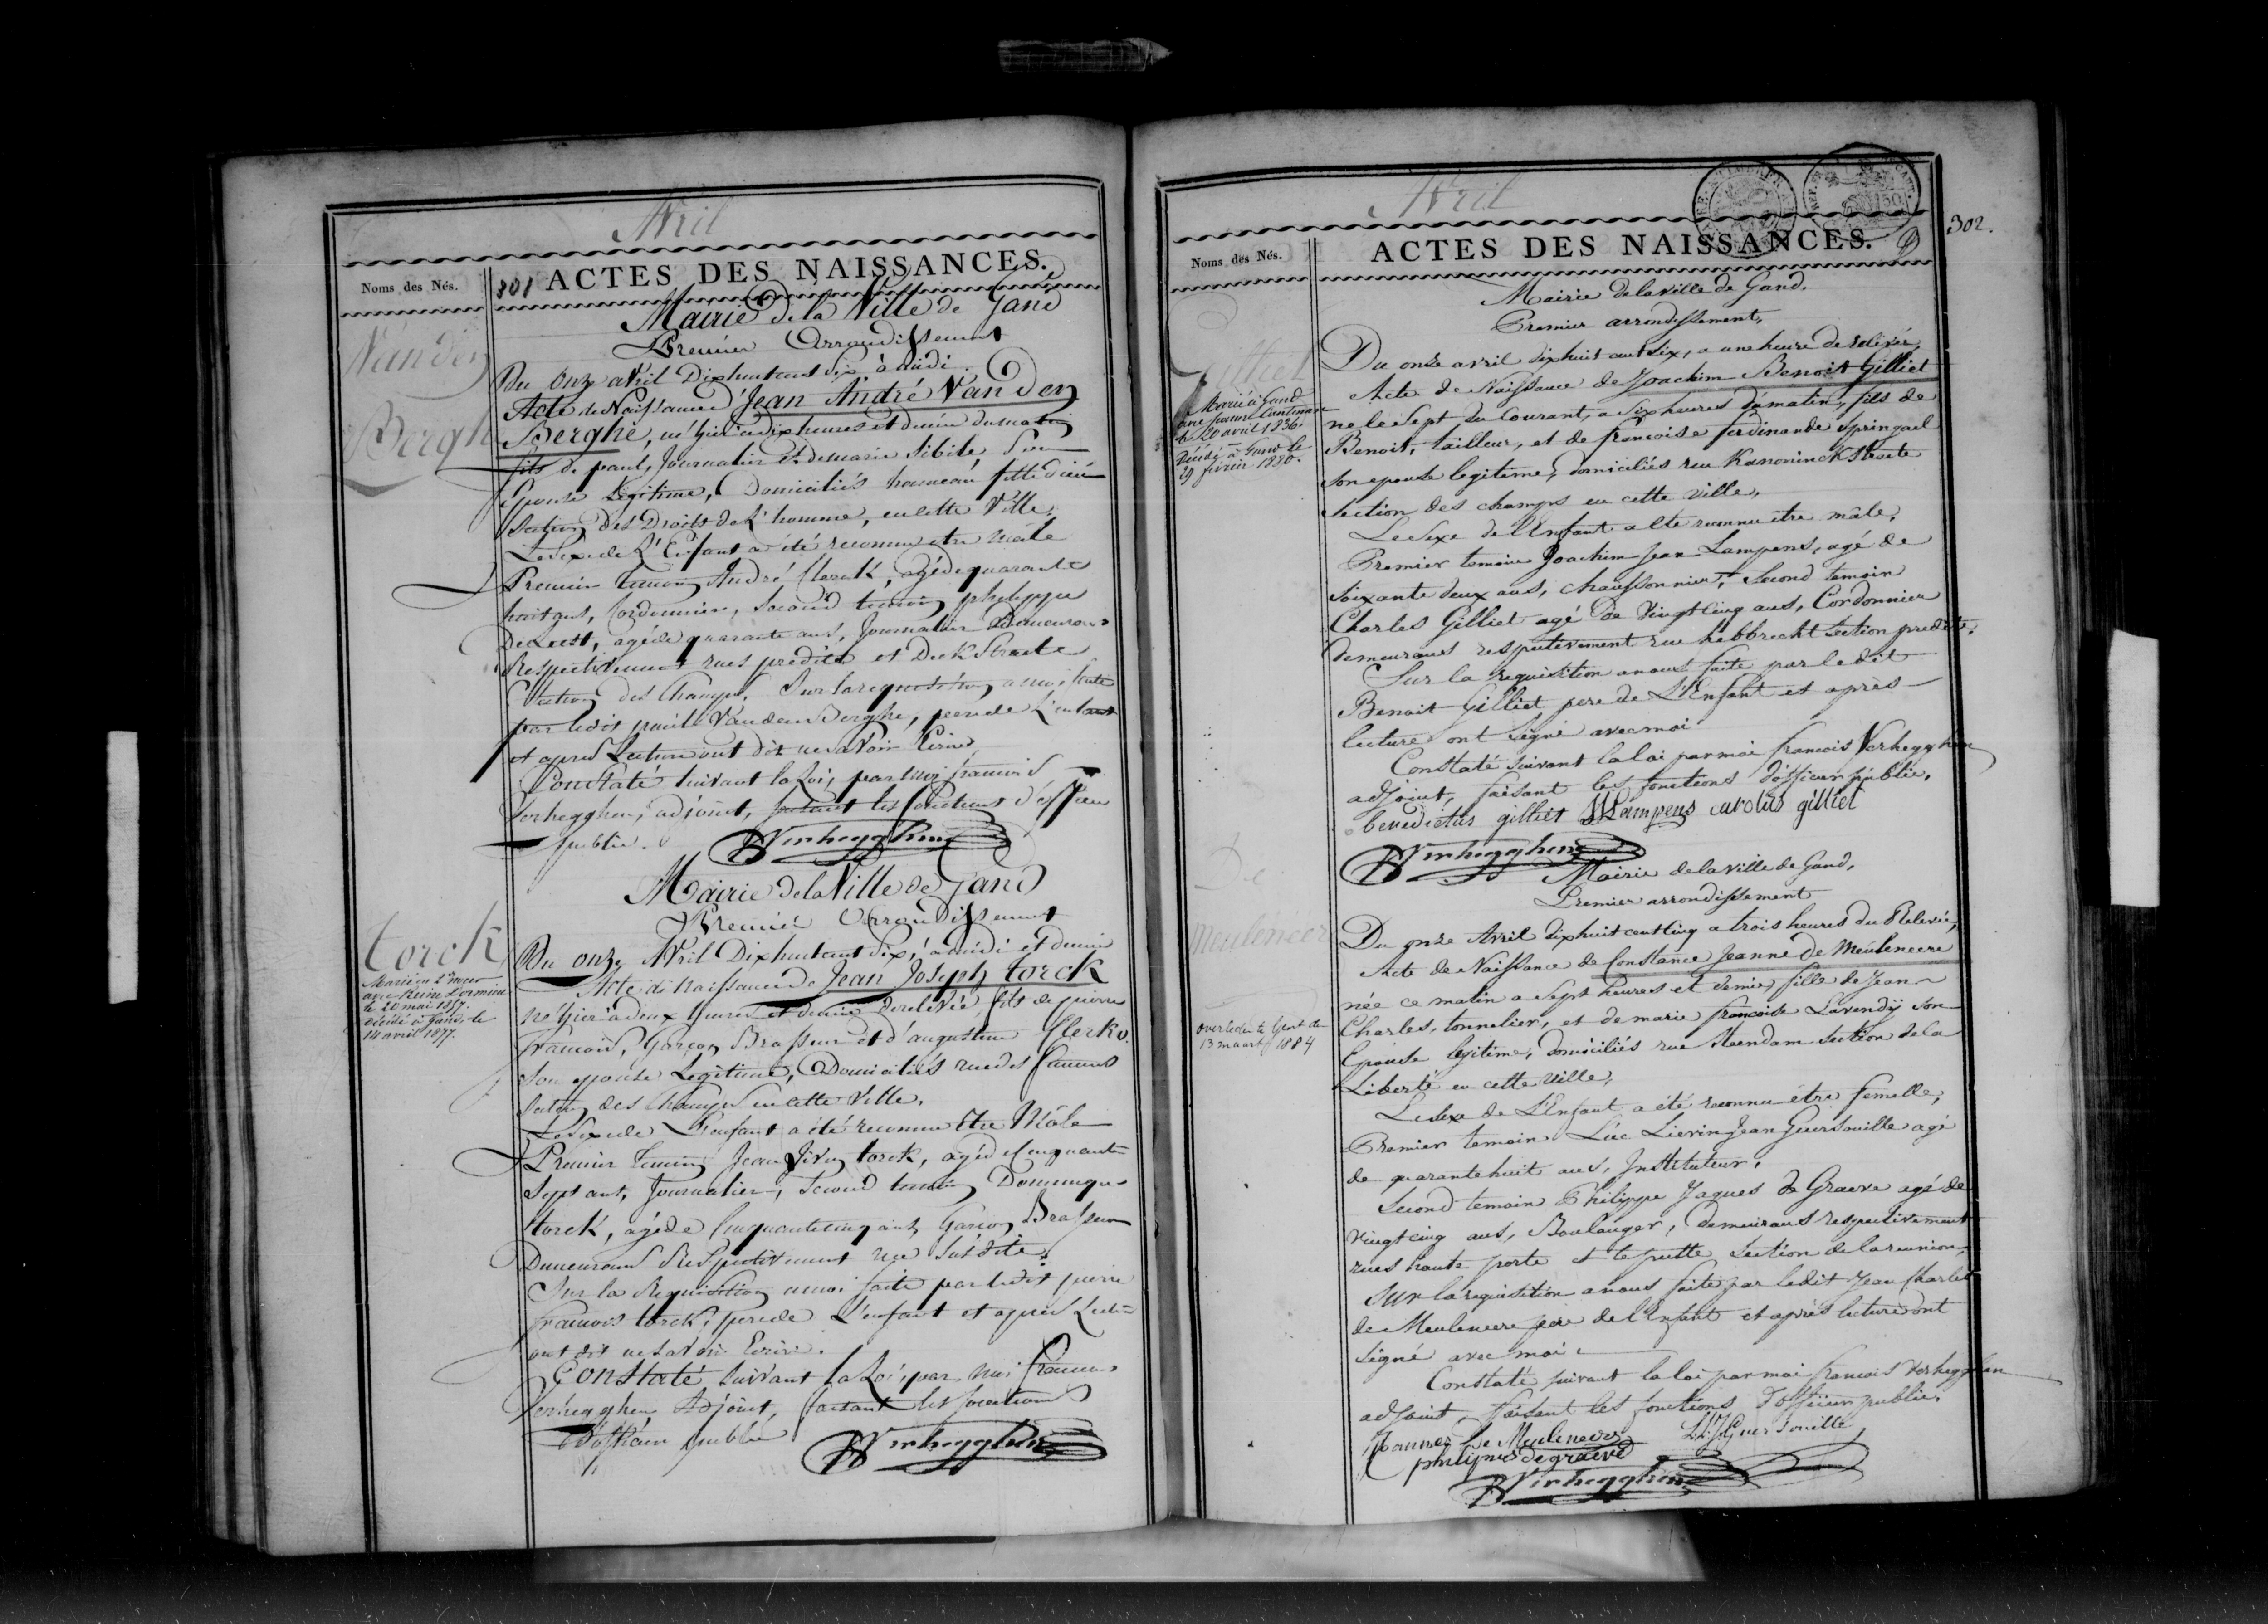 Avril
Noms des Nés.
301 ACTES DES NAISSANCES.
Vanden
Bergh
Mairie de la Ville de Gand
Premier Arrondissement
Du Onze avril Dixhuitcent Six, à midi
Acte de Naissance d'Jean André Van den
Berghe, né hier a dix heures et demie du matin
fils de paul, Journalier et de marie Sibile Son
Epouse Légitime, Domiciliés hameau
Section des Droits de L'homme, en cette Ville.
Le Sexe de L'Enfant a été reconnu etre mâle
Premier temoin André Clerck, agé de quarante
huit ans, Cordonnier, Second temoin philippe
agé de quarante ans, Journalier Demeurans
Respectivement rues predite et Straete
Section des Champs. Sur la requisition a moi faite
par ledit Vanden Berghe, pere de L'enfant
et apres Lecture ont dit ne savoir
Constaté suivant la Loi, par moi francois
Verhegghen, adjoint, faisant les fonctions d'officier
public.
Verhegghen
torck
Marié en 2es noces
avec
le 20 mai 1857.
décédé à Gand, le
14 avril 1877.
Mairie de la Ville de Gand
Premier Arrondissement
Du onze Avril Dixhuitcent Six, à midi et demie
Acte de naissance de Jean Joseph torck
né hier a deux heures et demie de relevée, fils de pierre
francois, Garcon Brasseur et d'augustine Clerkx
Son epouse Legitime, Domiciliés rue des
Section des Champs en cette Ville.
Le Sexe de L'enfant a été reconnu Etre Mâle
Premier temoin Jean torck, agé de Cinquante
Sept ans, Journalier, Second temoin Dominique
torck, agé de Cinquantecinq ans, Garcon Brasseur
Demeurans Respectivement rue Susdite.
Sur la Requisition a moi faite par ledit pierre
francois torck, pere de L'enfant et apres Lecture
ont dit ne savoir Ecrire.
Constaté Suivant la Loi, par moi francois
Verhegghen Adjoint, faisant les fonctions
D'officier public
Verhegghen
Avril
302.
Noms des Nés.
ACTES DES NAISSANCES.
Gilliet
Marié à Gand
le 20 avril 1836.
Décédé à Gand le
29 février 1880.
Mairie de la Ville de Gand.
Premier arrondissement,
Du onze avril dixhuit cent six, a une heure de relévée,
Acte de Naissance de Joachim Benoit Gilliet
né le Sept du Courant, a Six heures du matin, fils de
Benoit, tailleur, et de francoise ferdinande Springael
son epouse legitime, domiciliés rue Kanoninckstraete
Section des champs en cette ville,
Le Sexe de l'Enfant a été reconnu être mâle,
Premier temoin Joachim Jean Lampens, agé de
soixante deux ans, chaussonnier, Second temoin
Charles Gilliet agé de Vingt Cinq ans, Cordonnier
demeurans respectivement rue hebbrecht Section predite,
Sur la requisition a nous faite par le dit
Benoit Gilliet pere de L'Enfant et après
lecture ont signé avec moi
Constaté suivant la loi par moi francois Verhegghen
adjoint, faisant les fonctions d'officier public.
benedictus gilliet JJ Lampens carolus gilliet
Verhegghen
De
Meulencer
overleden te Gent den
13 maart 1884
Mairie de la Ville de Gand,
Premier arrondissement
Du onze Avril dixhuit cent Cinq a trois heures du Relevée,
Acte de Naissance de Constance Jeanne De Meulencere
née ce matin a Sept heures et demie, fille de Jean
Charles, tonnelier, et de marie francoise Lavendÿ son
Epouse legitime, domiciliés rue Steendam Section de la
Liberté en cette ville,
Le Sexe de L'Enfant a été reconnu être femelle,
Premier temoin Luc Lievin Jean Guersouille agé
de quarante huit ans, Instituteur,
Second temoin Philippe Jaques de Graeve agé de
vingt cinq ans, Boulanger, demeurans respectivement
rues haute porte et Section de la reunion,
Sur la requisition a nous faite par ledit Jean Charles
de Meulencere pere de l'Enfant et après lecture ont
Signé avec moi
Constaté suivant la loi par moi francois Verhegghen
adjoint, faisant les fonctions d'officier public.
Joannes De Meulencere LJ Guersouille
philipus degraeve
Verhegghen